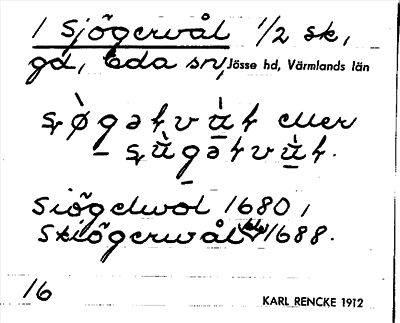 1 Sjögerwål 1/2 sk,
gd, Eda sn, Jösse hd, Värmlands län
eller
Siögelwol 1680,
Skiögerwål 1688.
16
KARL RENCKE 1912